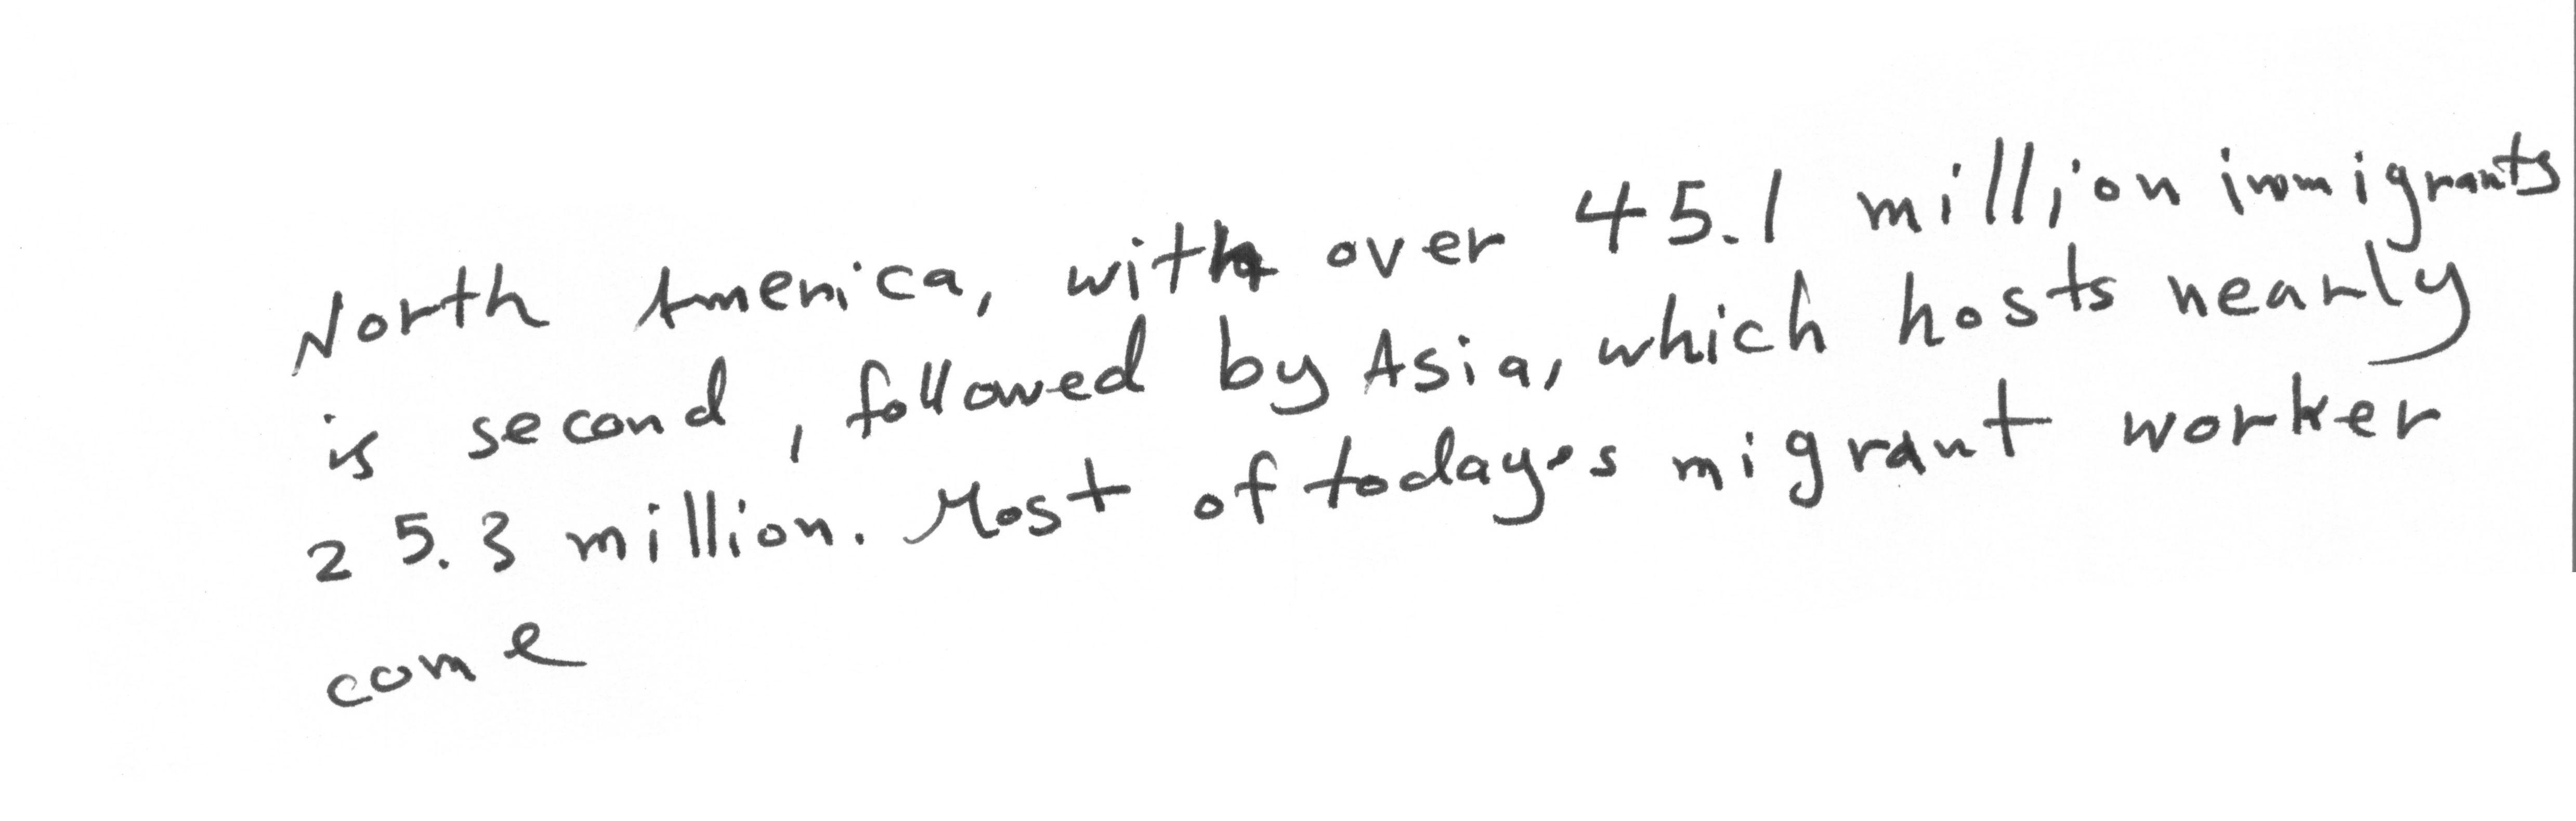 North America, with over 45.1 million immigrants
is second, followed by Asia, which hosts nearly
25.3 million. Most of today's migrant worker
come